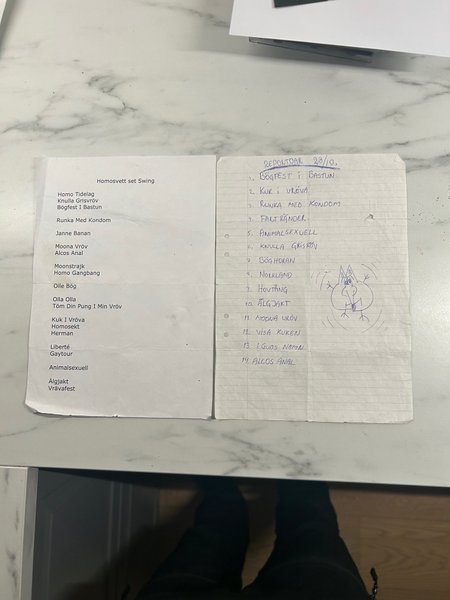 Homosvett set Swing
Homo Tidelag
Knulla Grisvröv
Bögfest I Bastun
Runka Med Kondom
Janne Banan
Moona Vröv
Alcos Anal
Moonstrajk
Homo Gangbang
Olle Bög
Olla Olla
Töm Din Pung I Min Vröv
Kuk I Vröva
Homosekt
Herman
Liberté
Gaytour
Animalsexuell
Älgjakt
Vrävafest
REPORTOAR 28/10.
1. BÖGFEST I BASTUN
2. KUK I VRÖVA
3. RUNKA MED KONDOM
4. FALTRÄNDER
5. ANIMALSEXUELL
6. KNULLA GRISRÖV
7. BÖGHORAN
8. NORRLAND
9.
10. ÄLGJAKT
11. MOONA VRÖV
12. VISA KUKEN
13.
14. ALCOS ANAL